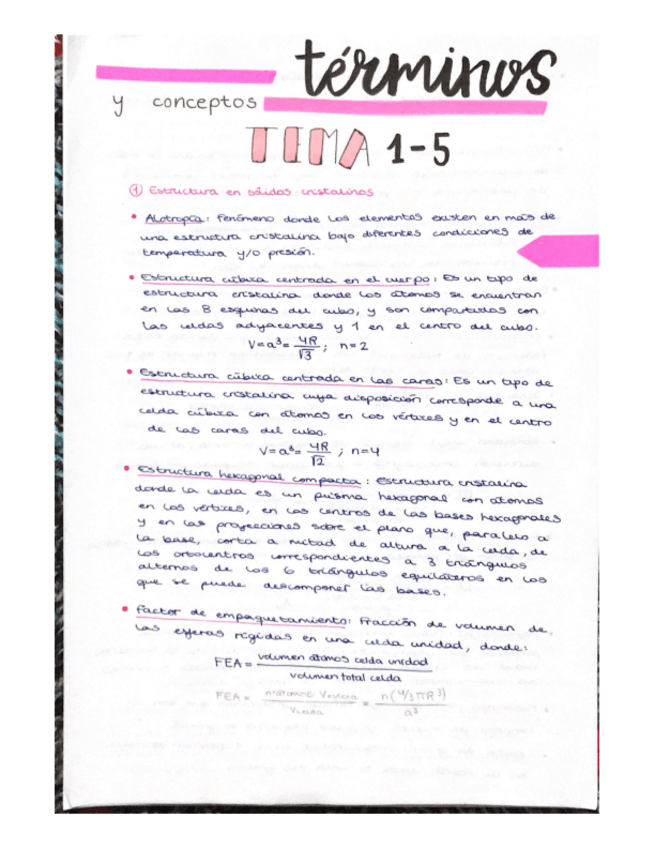 términos
y conceptos
TEMA 1-5
① Estructura en sólidos cristalinos
• Alotropía: fenómeno donde los elementos existen en más de
una estructura cristalina bajo diferentes condiciones de
temperatura y/o presión.
• Estructura cúbica centrada en el cuerpo: Es un tipo de
estructura cristalina donde los átomos se encuentran
en las 8 esquinas del cubo, y son compartidos con
las celdas adyacentes y 1 en el centro del cubo.
V=a³= 4R/√3 ; n=2
• Estructura cúbica centrada en las caras: Es un tipo de
estructura cristalina cuya disposición corresponde a una
celda cúbica con átomos en los vértices y en el centro
de las caras del cubo.
V=a³= 4R/√2 ; n=4
• Estructura hexagonal compacta: estructura cristalina
donde la celda es un prisma hexagonal con átomos
en los vértices, en los centros de las bases hexagonales
y en las proyecciones sobre el plano que, paralelo a
la base, corta a mitad de altura a la celda, de
los ortocentros correspondientes a 3 triángulos
alternos de los 6 triángulos equiláteros en los
que se puede descomponer las bases.
• Factor de empaquetamiento: Fracción de volumen de
las esferas rígidas en una celda unidad, donde:
FEA = volumen átomos celda unidad / volumen total celda
FEA = nºátomos Vesfera / Vcelda = n(4/3πR³) / a³